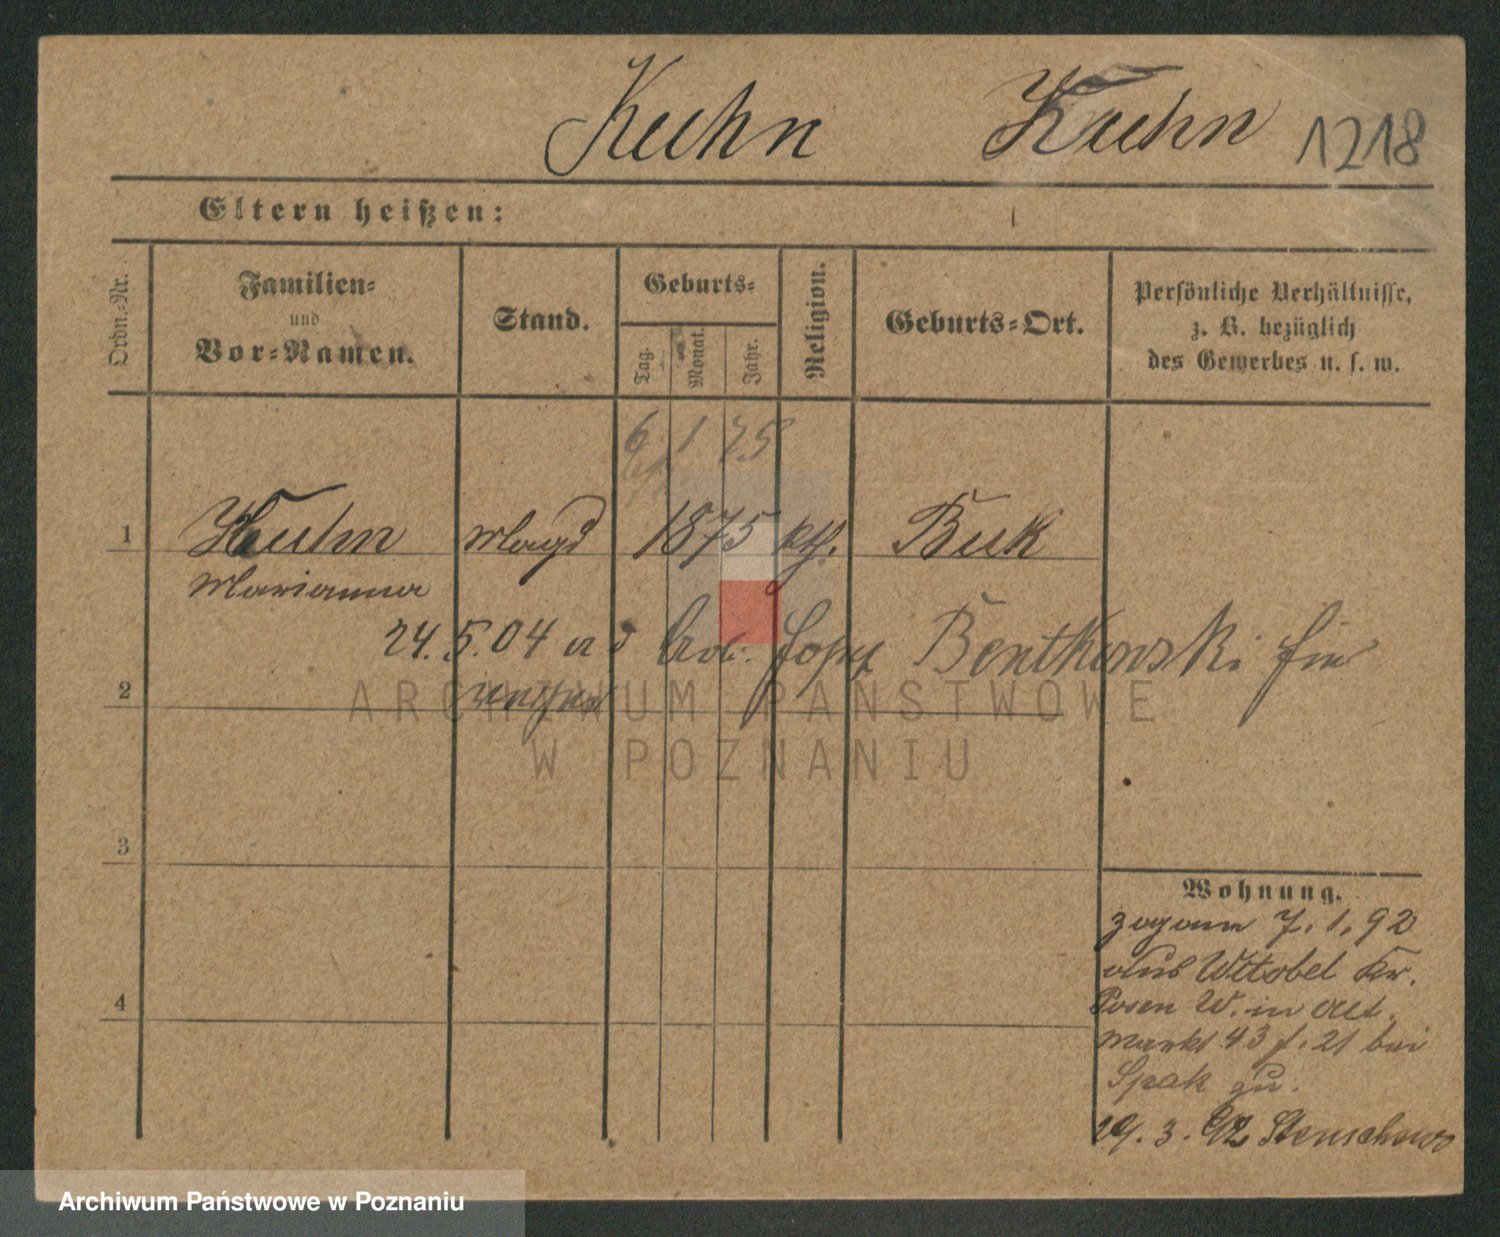 Kuhn Kuhn 1218
Eltern heißen:
Ordn.-Nr.
Familien-
und
Vor-Namen.
Stand.
Geburts-
Tag.
Monat.
Jahr.
Religion.
Geburts-Ort.
Persönliche Verhältnisse,
z. B. bezüglich
des Gewerbes u. s. w.
6 1 75
1 Kuhn Magd 1875 kth. Buk
Marianna
24.5.04 Josef Bentkowski
2
ARCHIWUM PAŃSTWOWE
W POZNANIU
3
Wohnung.
zog am 7.1.92
aus Wtobel Kr.
4
Posen W. in Alt.
Markt 43 f. 21 bei
Spak zu.
29.3.92 Stenschewo
Archiwum Państwowe w Poznaniu